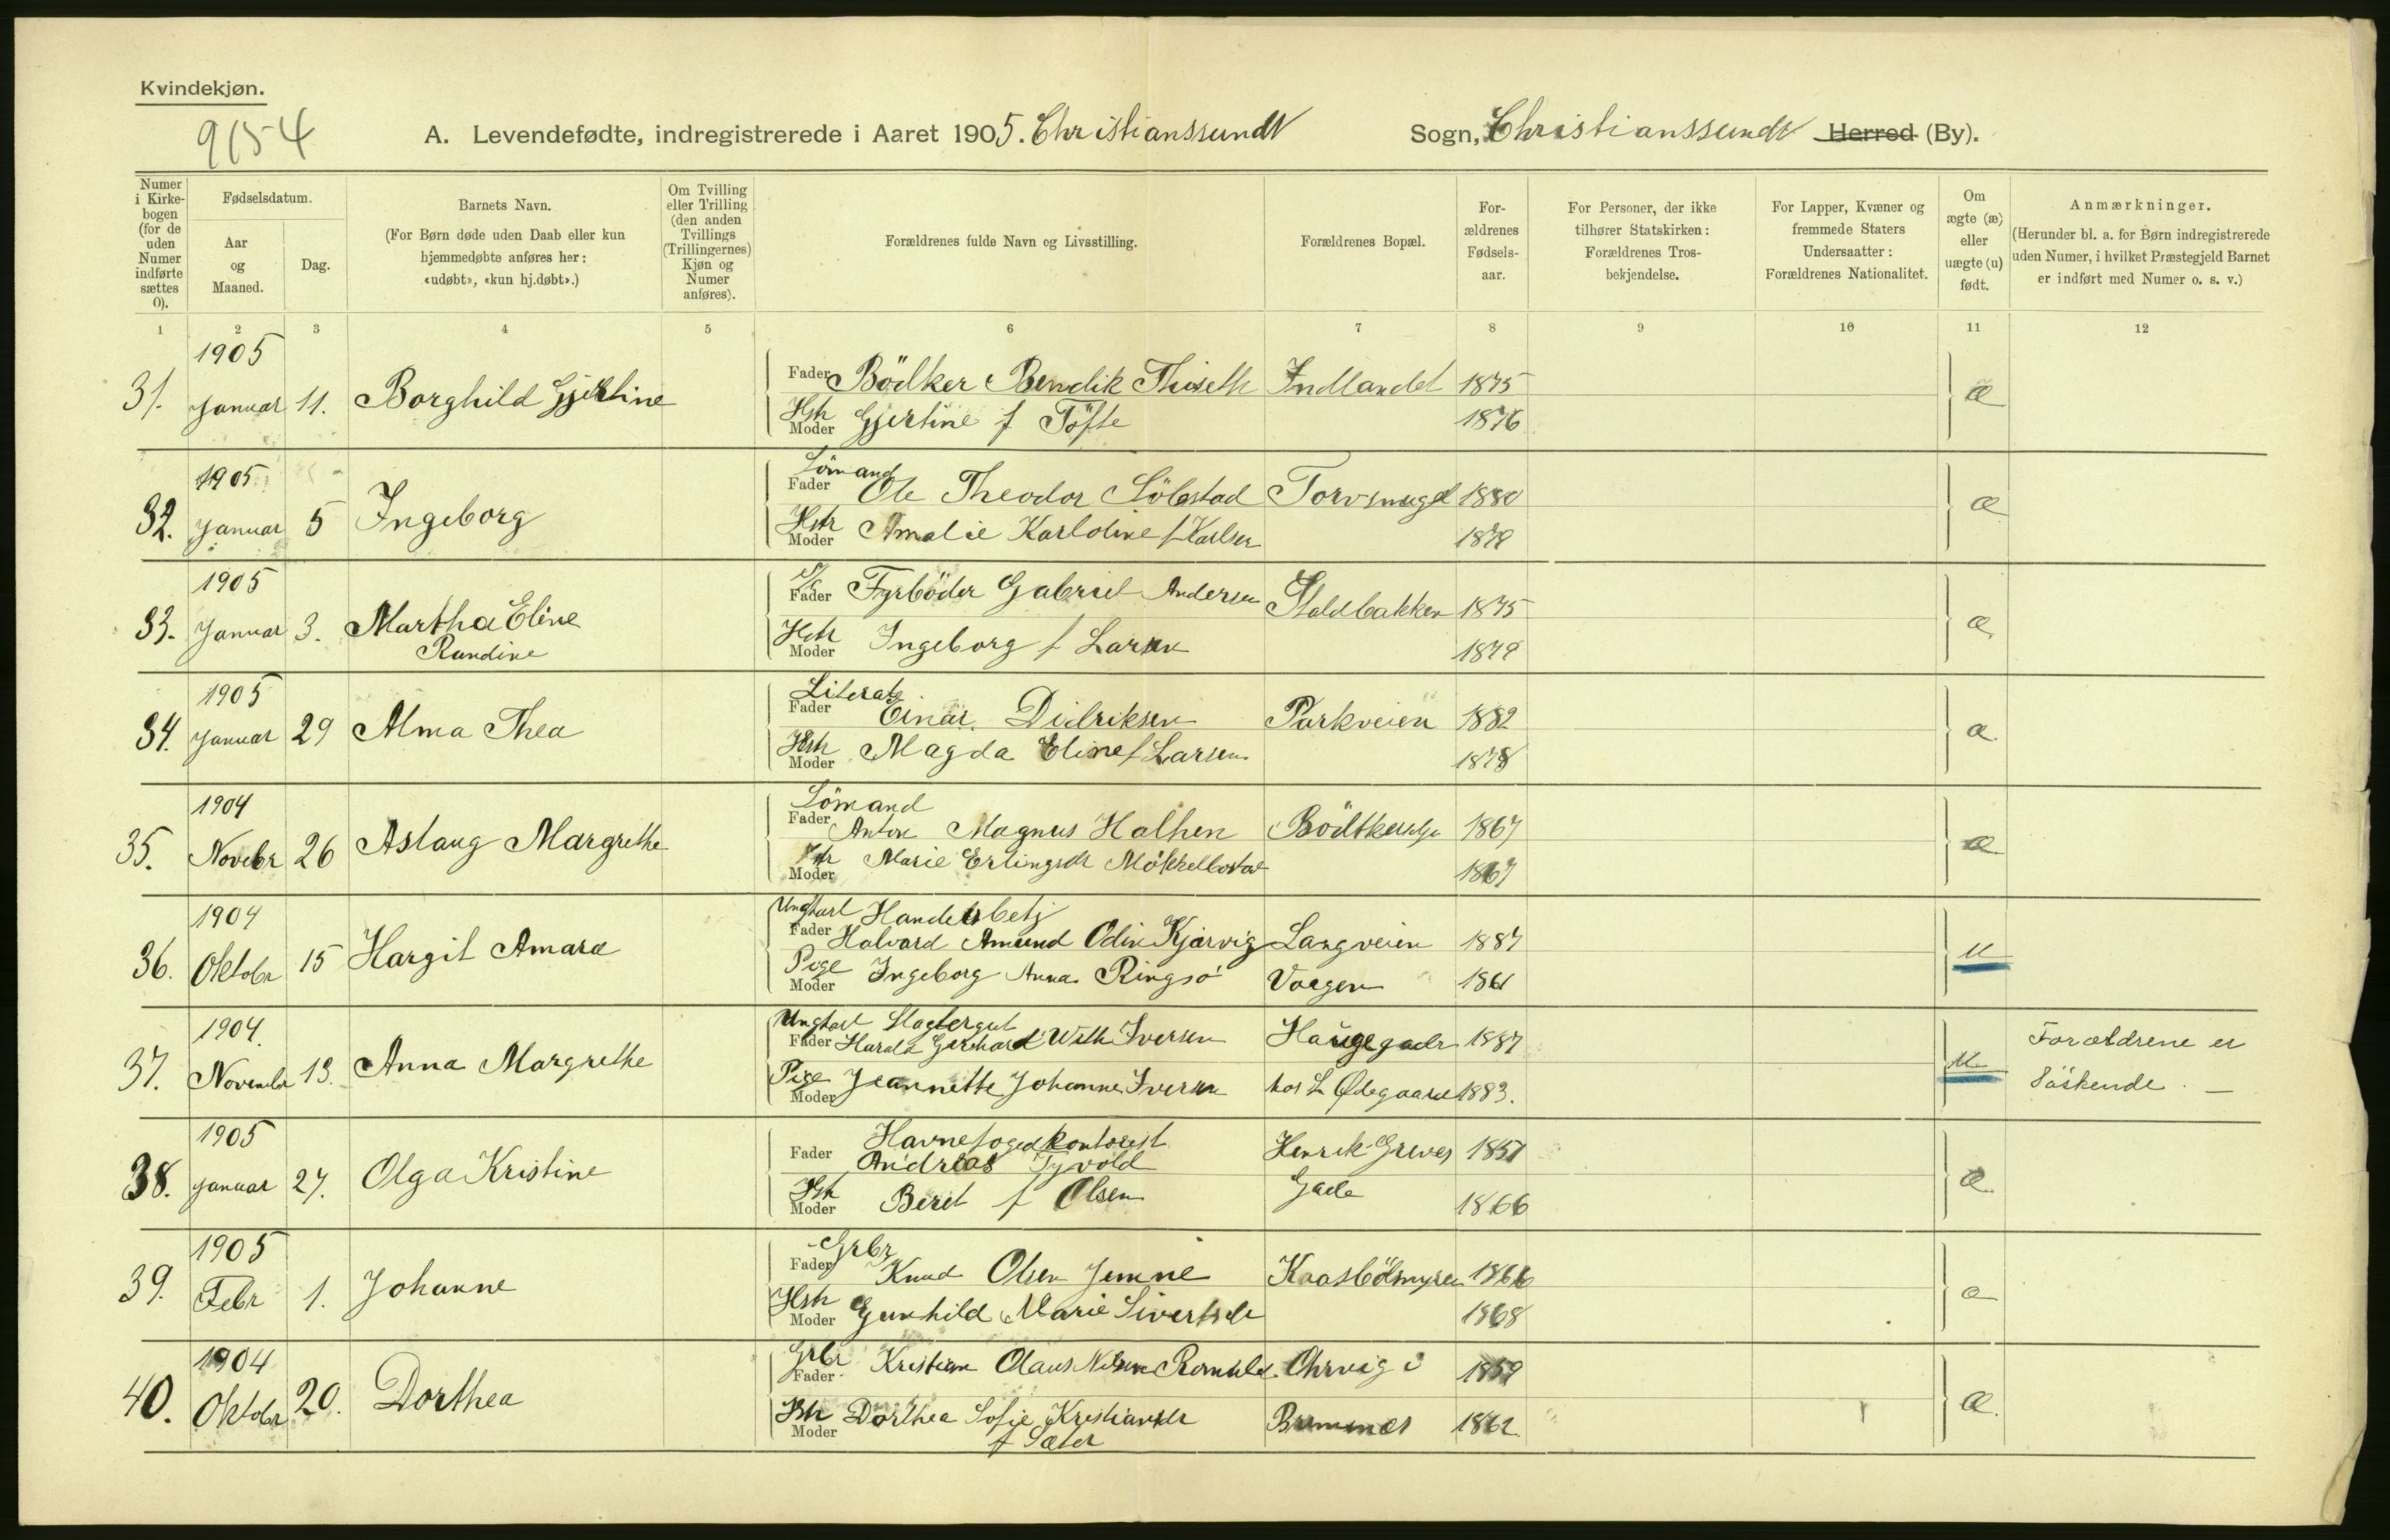 Kvindekjøn.
9154
A. Levendefødte, indregistrerede i Aaret 1905. Christianssundt Sogn, Christianssundt Herred (By).
Numer i Kirkebogen (for de uden Numer indførte sættes 0).
Fødselsdatum.
Aar og Maaned.
Dag.
Barnets Navn.
(For Børn døde uden Daab eller kun hjemmedøbte anføres her: «udøbt», «kun hj.døbt».)
Om Tvilling eller Trilling (den anden Tvillings (Trillingernes) Kjøn og Numer anføres).
Forældrenes fulde Navn og Livsstilling.
Forældrenes Bopæl.
For-ældrenes Fødsels-aar.
For Personer, der ikke tilhører Statskirken: Forældrenes Tros-bekjendelse.
For Lapper, Kvæner og fremmede Staters Undersaatter: Forældrenes Nationalitet.
Om ægte (æ) eller uægte (u) født.
Anmærkninger.
(Herunder bl. a. for Børn indregistrerede uden Numer, i hvilket Præstegjeld Barnet er indført med Numer o. s. v.)
1 2 3 4 5 6 7 8 9 10 11 12
31. 1905 Januar 11. Borghild Gjertine
Fader Bödker Bendik Thiseth Indlandet 1875 æ
Hstr Moder Gjertine f Töfte 1876
32. 1905 Januar 5 Ingeborg
Sömand Fader Ole Theodor Söbstad Torvsmuget 1880 æ
Hstr Moder Amalie Karloline f Karlsen 1879
33. 1905 Januar 3. Martha Eline Randine
Fader Fyrböder Gabriel Andersen Staldbakken 1875 æ
Hstr Moder Ingeborg f Larsen 1879
34. 1905 Januar 29 Alma Thea
Literats Fader Einar Didriksen Parkveien 1882 æ
Hstr Moder Magda Eline f Larsen 1878
35. 1904 Novebr 26 Aslaug Margrethe
Sömand Fader Anton Magnus Halhen 1867 æ
Moder Marie Erlingsdtr Mökkelbostad 1867
36. 1904 Oktobr 15 Hargit Amara
Ungkarl Handelsbetj
Fader Halvard Amund Odin Kjørvig Langveien 1887 u
Pige Moder Ingeborg Anna Ringsö Vaagen 1861
37. 1904. Novembr 13. Anna Margrethe
Ungkarl Slagtergut
Fader Harald Gerhard Wilh Iversen Haugegadn 1887 u Forældrene er
Pige Moder Jeannette Johanne Iversen hos L Ødegaard 1883. Söskende. —
38. 1905 Januar 27. Olga Kristine
Havnefogedkontorist
Fader Andreas Tyvold Henrik Greves Gade 1857 æ
Hstr Moder Beret f Olsen 1866
39. 1905 Febr 1. Johanne
Grbr Fader Knud Olsen Jemne Kaasbölmyren 1866 æ
Hstr Moder Gunhild Marie Sivertsdr 1868
40. 1904 Oktobr 20. Dorthea
Grbr Fader Kristian Olaus Nilsen Romuld Ohrvig i 1859 æ
Hstr Moder Dorthea Sofie Kristiansdr f Sæter Bremsnes 1862